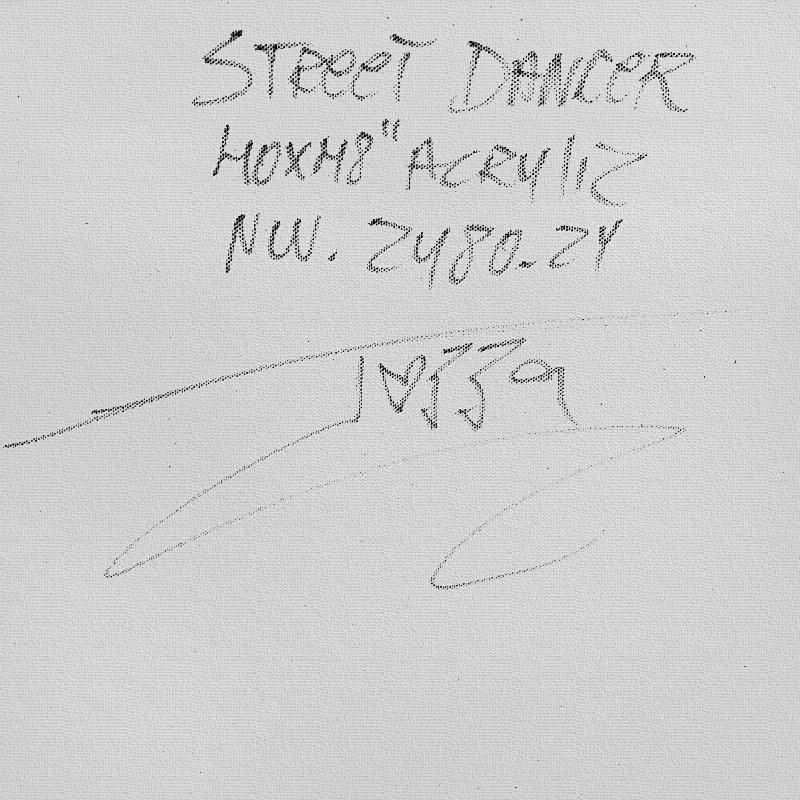 STREET DANCER
40X48" ACRYLIC
NW. 2480-24